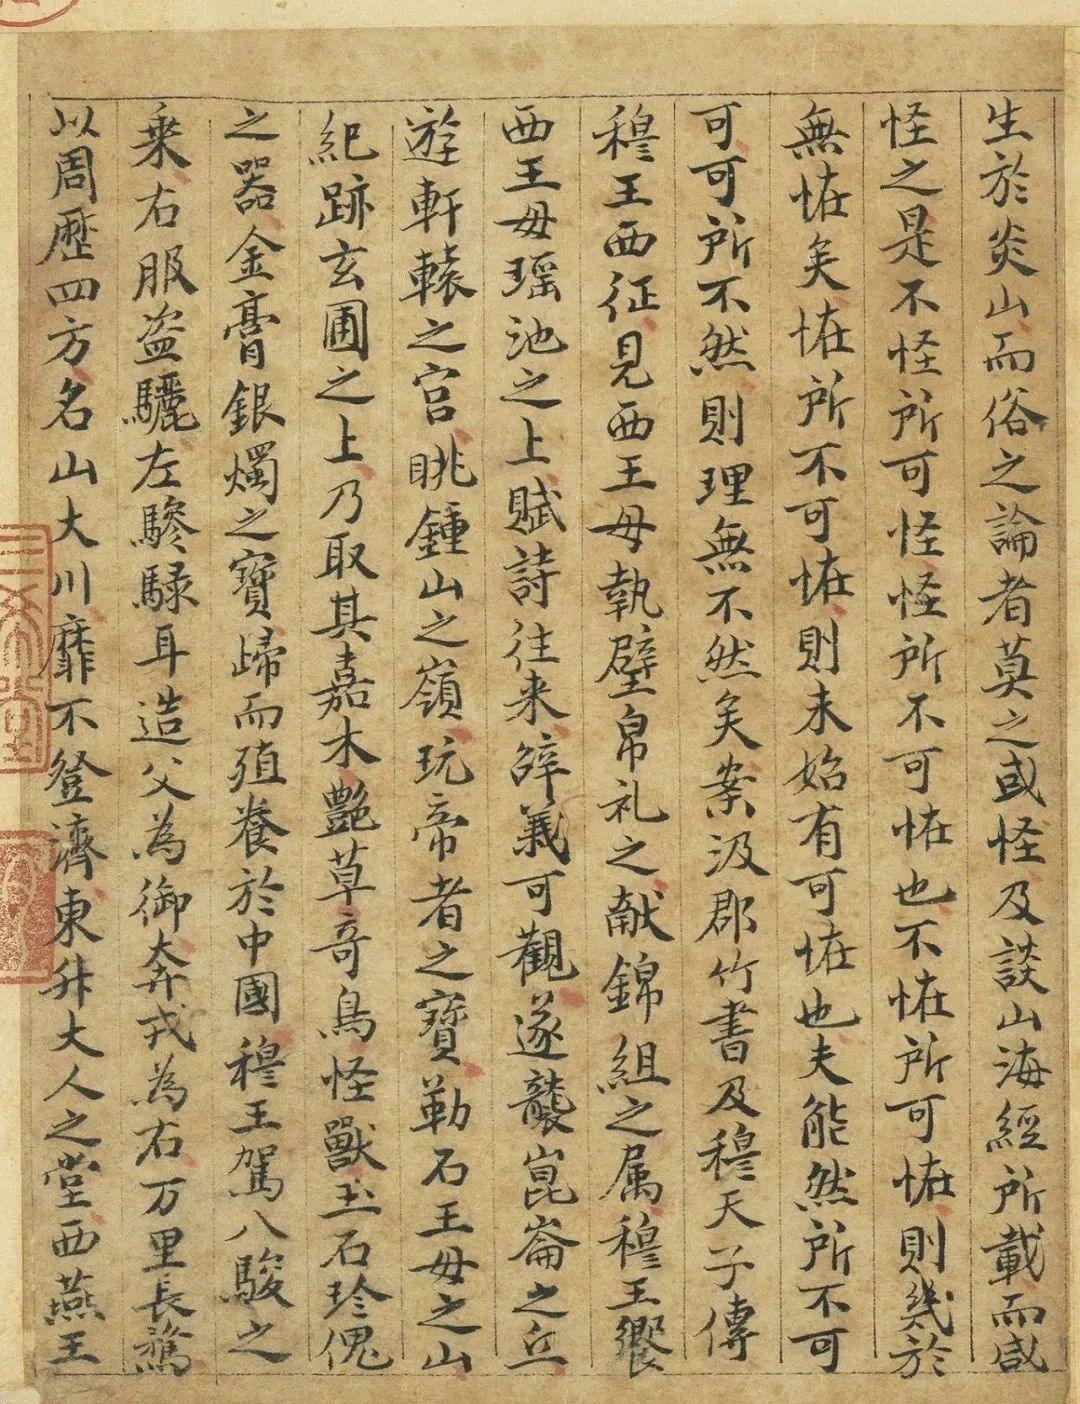 生於炎山而俗之論者莫之或怪及談山海經所載而咸
怪之是不怪所可怪怪所不可恠也不恠所可恠則幾於
無恠矣恠所不可恠則未始有可恠也夫能然所不可
可可所不然則理無不然矣案汲郡竹書及穆天子傳
穆王西征見西王母執璧帛礼之献錦組之属穆王饗
西王母瑶池之上賦詩往来辝義可觀遂襲崑崙之丘
遊軒轅之宮眺鍾山之嶺玩帝者之寶勒石王母之山
紀跡玄圃之上乃取其嘉木艶草竒鳥怪獸玉石珍傀
之器金膏銀燭之寶歸而殖養於中國穆王駕八駿之
乘右服盗驪左驂騄耳造父為御奔戎為右万里長騖
以周歷四方名山大川靡不登濟東升大人之堂西燕王